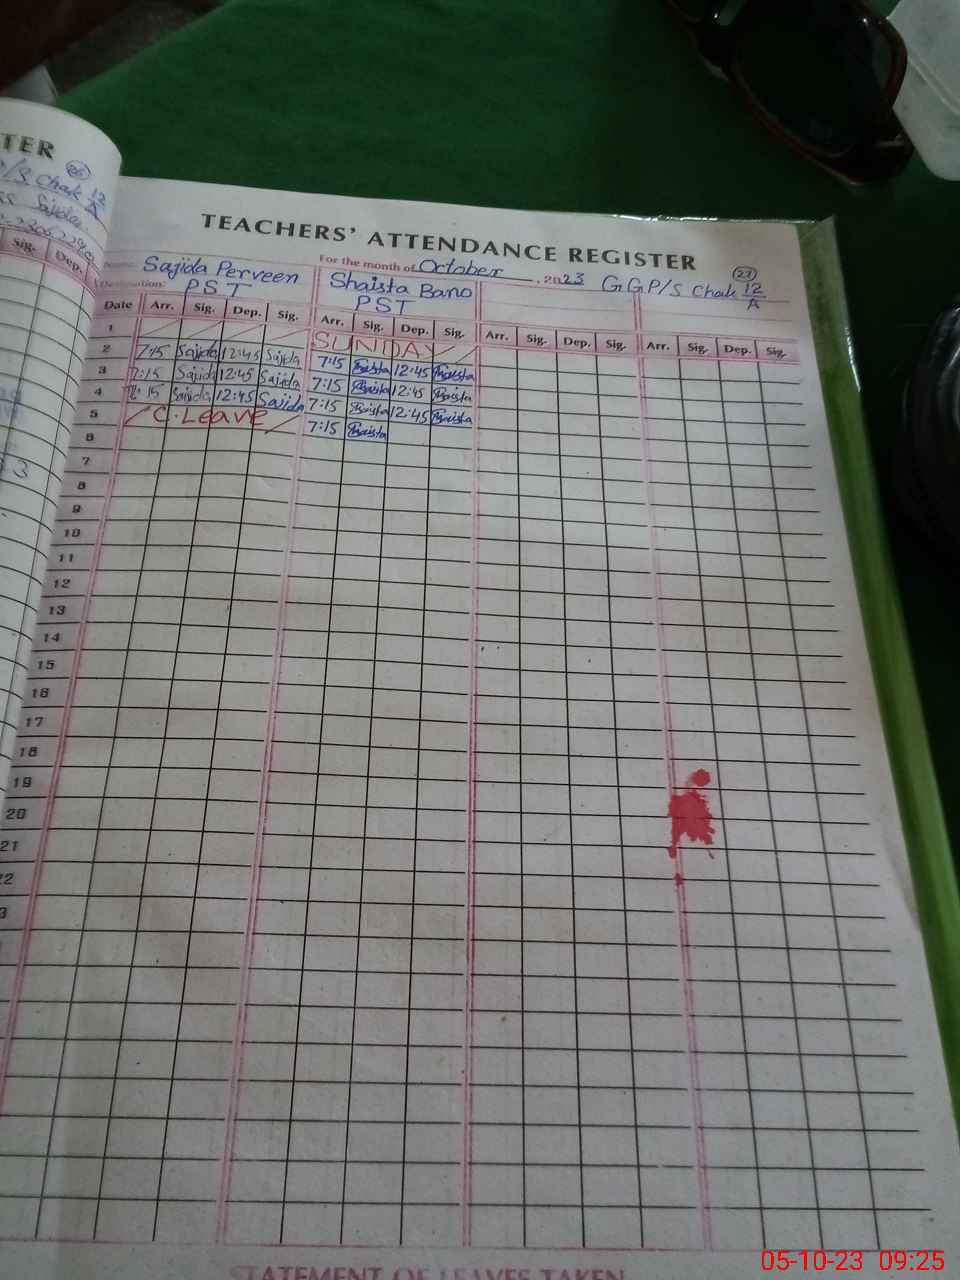 TER
26
P/S Chak 12/A
ss Sajida
Sig. Dep.
13
TEACHERS' ATTENDANCE REGISTER
For the month of October, 2023 GGP/S Chak 12/A
27
Sajida Perveen Shaista Bano
Designation: PST PST
Date Arr. Sig. Dep. Sig. Arr. Sig. Dep. Sig. Arr. Sig. Dep. Sig. Arr. Sig. Dep. Sig.
1 SUNDAY
2 7:15 Sajida 12:45 Sajida 7:15 Shaista 12:45 Shaista
3 7:15 Sajida 12:45 Sajida 7:15 Shaista 12:45 Shaista
4 7:15 Sajida 12:45 Sajida 7:15 Shaista 12:45 Shaista
5 C. Leave 7:15 Shaista
6
7
8
9
10
11
12
13
14
15
16
17
18
19
20
21
22
STATEMENT OF LEAVES TAKEN
05-10-23 09:25